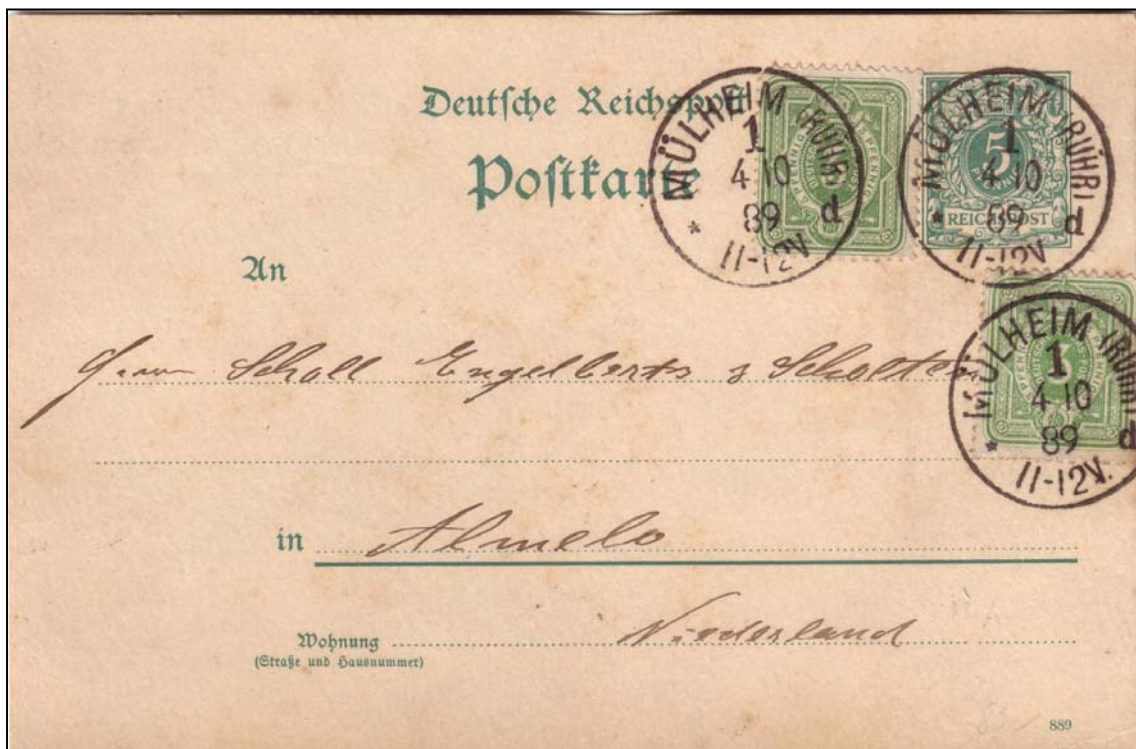 Deutsche Reichspost
Postkarte
MÜLHEIM (RUHR)
1
4 10
89
* d
11-12V.
MÜLHEIM (RUHR)
1
4 10
89
* d
11-12V.
5
PFENNIG
REICHSPOST
MÜLHEIM (RUHR)
1
4 10
89
* d
11-12V.
An
Herrn Scholl Engelberts & Scholten
in Almelo
Wohnung Niederland
(Straße und Hausnummer)
889